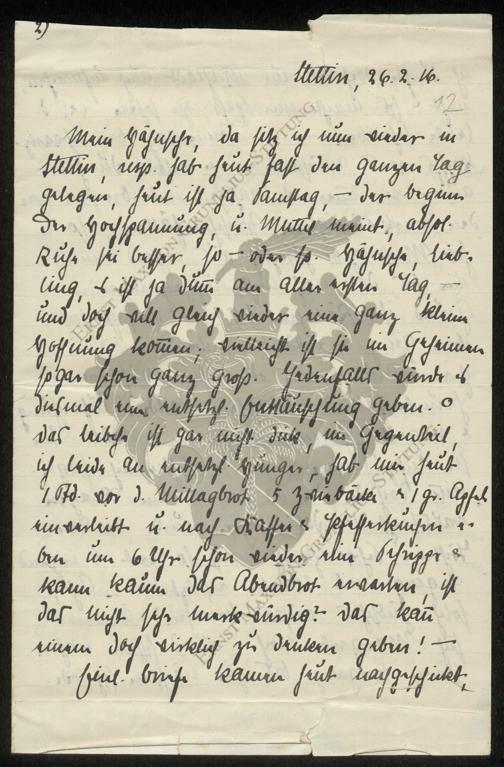 2)
Stettin, 26.2.16.
12
Mein Hähnsche, da sitz ich nun wieder in
Stettin, resp. hab heut fast den ganzen Tag
gelegen, heut ist ja Samstag, – der Beginn
der Hochspannung, u. Muttel meint, absol.
Ruhe sei besser, so – oder so. Hähnsche, Lieb-
ling, es ist ja dum̅ am allerersten Tag –
und doch will gleich wieder eine ganz kleine
Hoffnung kom̅en, vielleicht ist sie im Geheimen
sogar schon ganz groß. Jedenfalls würde es
diesmal eine entsetzl. Enttäuschung geben. O
das Leibche ist gar nicht dick, im Gegenteil,
ich leide an entsetzl. Hunger, hab mir heut
1 Std. vor d. Mittagbrot 5 Zwiebäcke & 1 gr. Apfel
einverleibt u. nach Kaffee & Pfefferkuchen e-
ben um 6 Uhr schon wieder eine Schrippe &
kann kaum das Abendbrot erwarten, ist
das nicht sehr merkwürdig? Das kan̅
einem doch wirklich zu denken geben! –
Briefe kamen heut nachgeschickt,
ERNST MAX VON GRUNELIUS-STIFTUNG
ERNST MAX VON GRUNELIUS-STIFTUNG